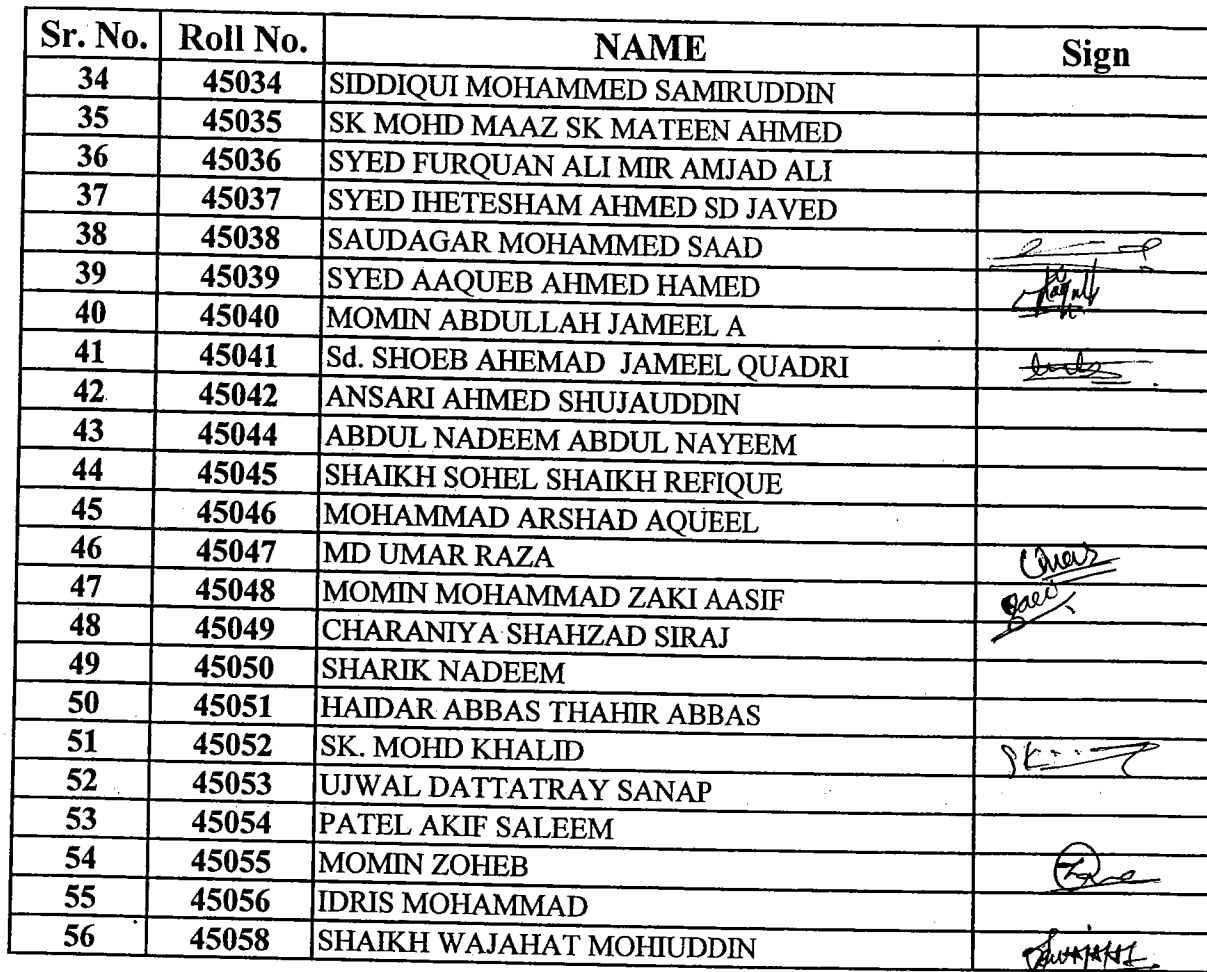 Sr. No. Roll No. NAME Sign
34 45034 SIDDIQUI MOHAMMED SAMIRUDDIN
35 45035 SK MOHD MAAZ SK MATEEN AHMED
36 45036 SYED FURQUAN ALI MIR AMJAD ALI
37 45037 SYED IHETESHAM AHMED SD JAVED
38 45038 SAUDAGAR MOHAMMED SAAD
39 45039 SYED AAQUEB AHMED HAMED
40 45040 MOMIN ABDULLAH JAMEEL A
41 45041 Sd. SHOEB AHEMAD JAMEEL QUADRI
42 45042 ANSARI AHMED SHUJAUDDIN
43 45044 ABDUL NADEEM ABDUL NAYEEM
44 45045 SHAIKH SOHEL SHAIKH REFIQUE
45 45046 MOHAMMAD ARSHAD AQUEEL
46 45047 MD UMAR RAZA
47 45048 MOMIN MOHAMMAD ZAKI AASIF
48 45049 CHARANIYA SHAHZAD SIRAJ
49 45050 SHARIK NADEEM
50 45051 HAIDAR ABBAS THAHIR ABBAS
51 45052 SK. MOHD KHALID
52 45053 UJWAL DATTATRAY SANAP
53 45054 PATEL AKIF SALEEM
54 45055 MOMIN ZOHEB
55 45056 IDRIS MOHAMMAD
56 45058 SHAIKH WAJAHAT MOHIUDDIN